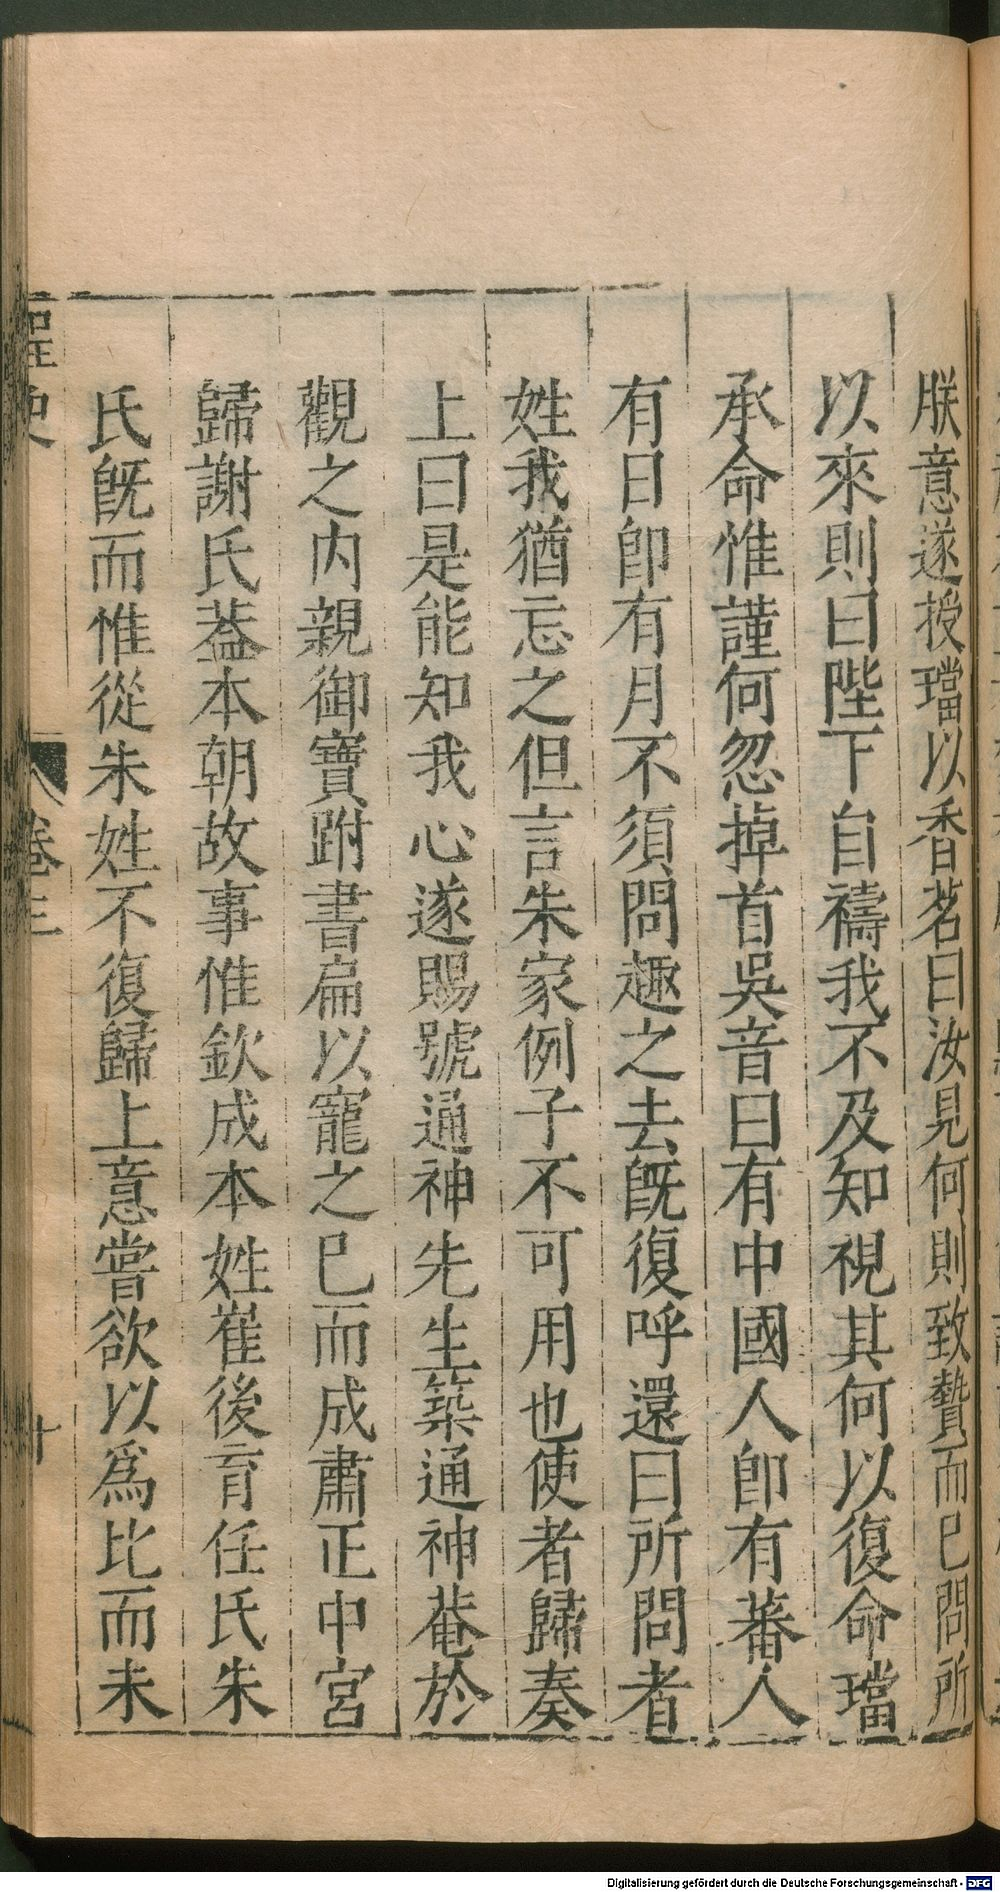 朕意遂授璫以香茗曰汝見何則致贄而已問所
以來則曰陛下自禱我不及知視其何以復命璫
承命惟謹何忽掉首吳音曰有中國人卽有蕃人
有日卽有月不須問趣之去旣復呼還曰所問者
姓我猶忘之但言朱家例子不可用也使者歸奏
上曰是能知我心遂賜號通神先生築通神菴於
觀之内親御寶跗書扁以寵之已而成肅正中宮
歸謝氏葢本朝故事惟欽成本姓崔後育任氏朱
氏旣而惟從朱姓不復歸上意嘗欲以爲比而未
桯史
卷三
十
Digitalisierung gefördert durch die Deutsche Forschungsgemeinschaft - DFG